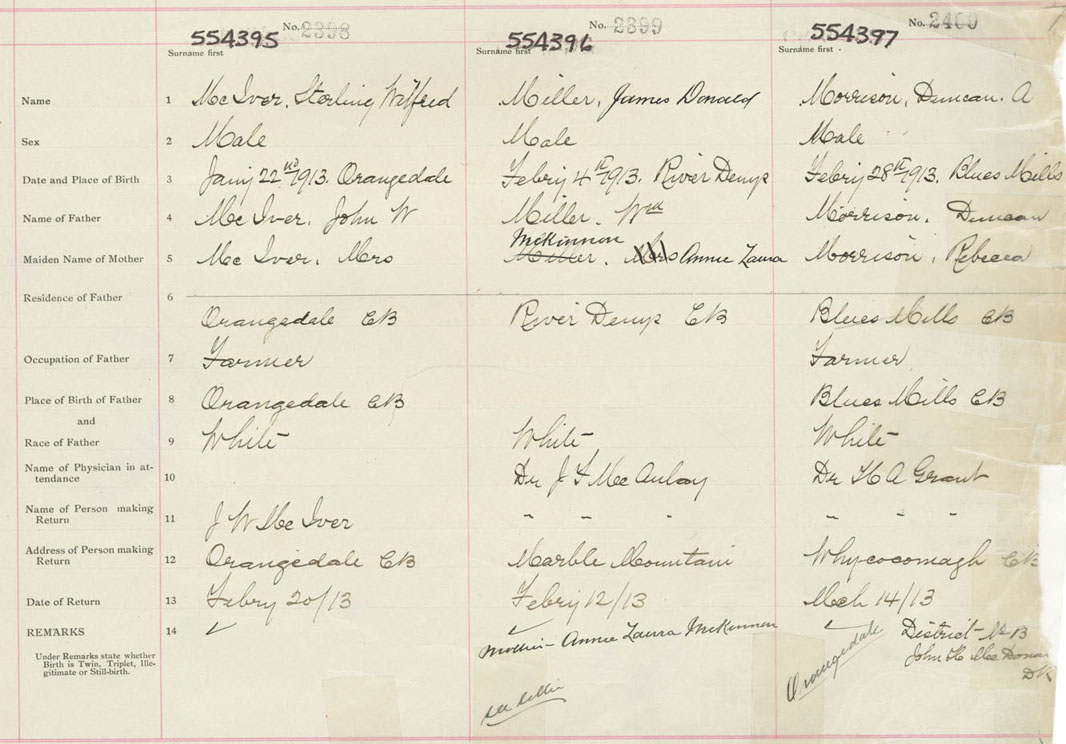 No. 2398 No. 2399 No. 2400
554395 554396 554397
Surname first Surname first Surname first
Name 1 Mc Iver, Sterling Wilfred Miller, James Donald Morrison, Duncan. A
Sex 2 Male Male Male
Date and Place of Birth 3 Jany 22nd 1913. Orangedale Febry 4th 1913. River Denys Febry 28th 1913. Blues Mills
Name of Father 4 Mc Iver, John W Miller, Wm Morrison, Duncan
McKinnon
Maiden Name of Mother 5 Mc Iver, Mrs Miller, Mrs Annie Laura Morrison, Rebecca
Residence of Father 6
Orangedale CB River Denys CB Blues Mills CB
Occupation of Father 7 Farmer Farmer
Place of Birth of Father 8 Orangedale CB Blues Mills CB
and
Race of Father 9 White White White
Name of Physician in at-
tendance 10 Dr J F McAulay Dr H A Grant
Name of Person making
Return 11 J W McIver " " " " " "
Address of Person making
Return 12 Orangedale CB Marble Mountain Whycocomagh CB
Date of Return 13 Febry 20/13 Febry 12/13 Mch 14/13
REMARKS 14 ✓ ✓ ✓
Mother - Annie Laura McKinnon Orangedale District No 13
Under Remarks state whether
Birth is Twin, Triplet, Ille-
gitimate or Still-birth.
John H
DR
see letter